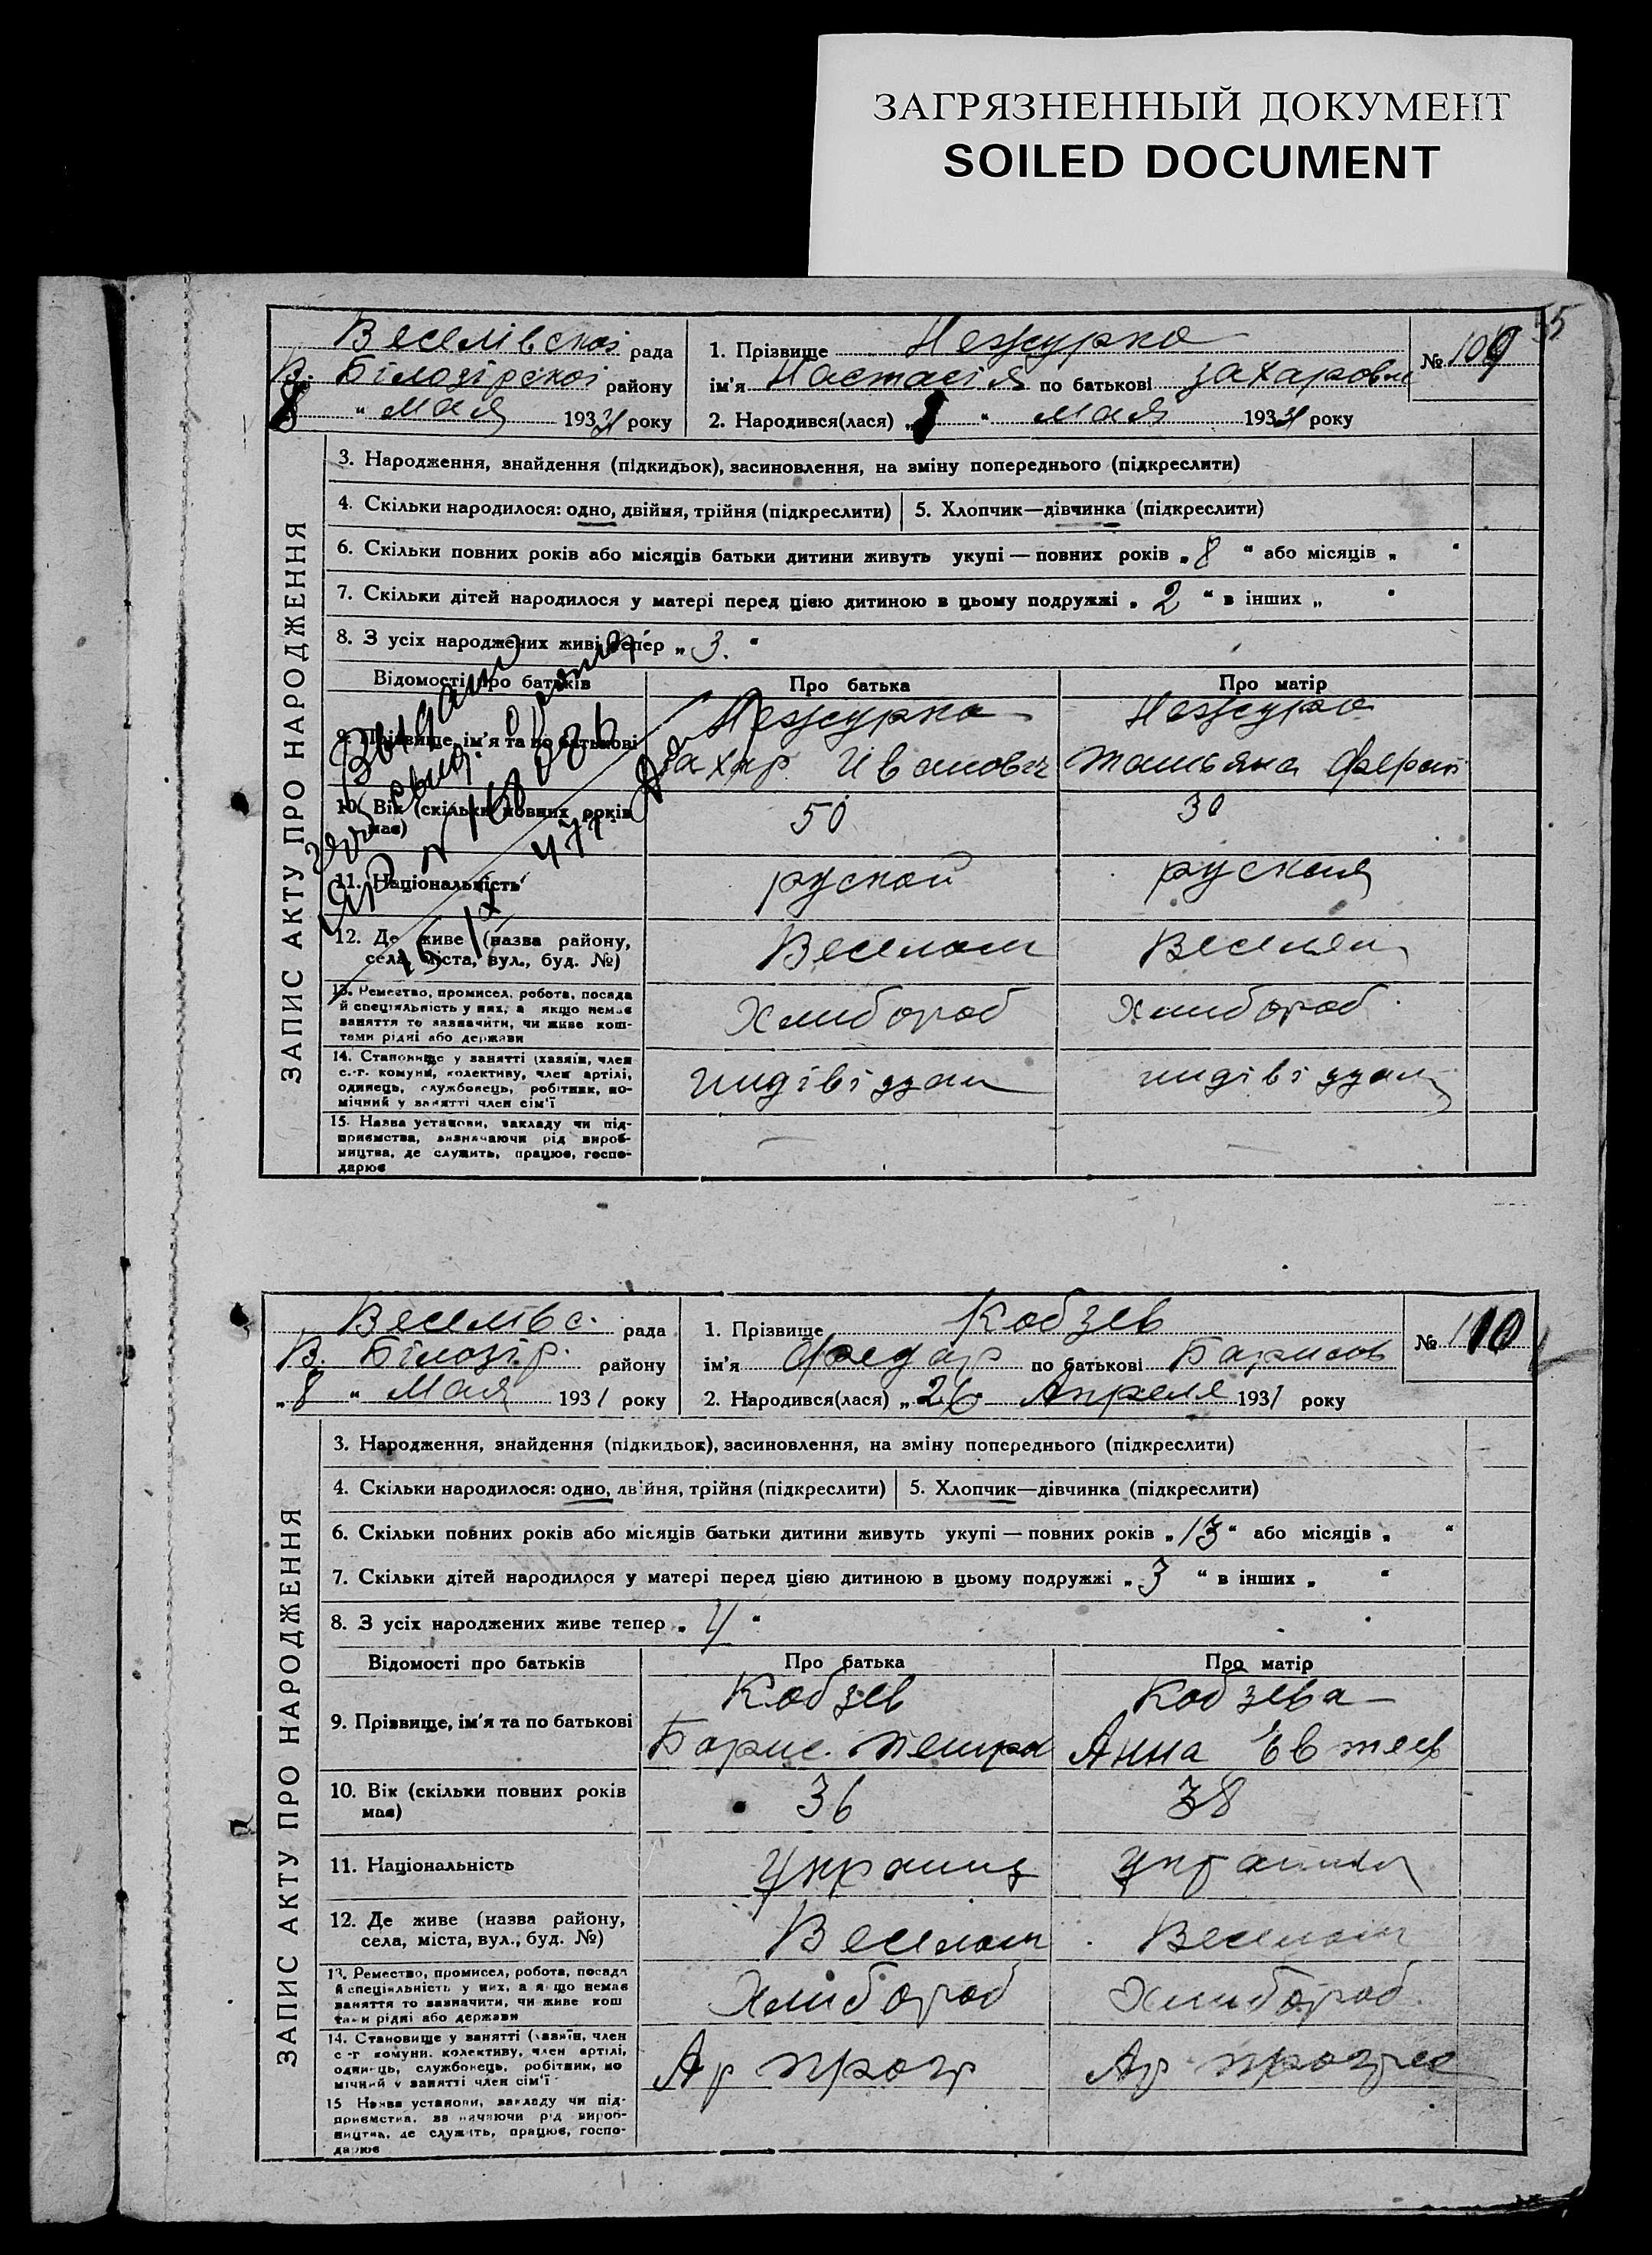 ЗАГРЯЗНЕННЫЙ ДОКУМЕНТ
SOILED DOCUMENT
55
ЗАПИС АКТУ ПРО НАРОДЖЕННЯ
Веселівскої рада
В. Білозірскої району
8 " мая 1931 року
1. Прізвище Нежурко
ім'я Настасія по батькові Захаровна
2. Народився(лася) „ " мая 1931 року
№ 109
3. Народження, знайдення (підкидьок), засиновлення, на зміну попереднього (підкреслити)
4. Скільки народилося: одно, двійня, трійня (підкреслити)
5. Хлопчик—дівчинка (підкреслити)
6. Скільки повних років або місяців батьки дитини живуть укупі — повних років „ 8 " або місяців „ "
7. Скільки дітей народилося у матері перед цією дитиною в цьому подружжі „ 2 " в інших „ "
8. З усіх народжених живе тепер „ 3. "
Відомості про батьків
Про батька
Про матір
9. Прізвище, ім'я та по батькові
Нежурко
Захар Иванович
Нежурко
Татьяна
10. Вік (скільки повних років має)
50
30
11. Національність
руской
руская
12. Де живе (назва району, села, міста, вул., буд. №)
Веселом
13. Ремество, промисел, робота, посада
й спеціяльність у них, а якщо немає
заняття то зазначити, чи живе кош-
тами рідні або держави
Хлибороб
Хлибороб
14. Становище у занятті (хазяїн, член
с.-г. комуни, колективу, член артілі,
одинець, службовець, робітник, по-
мічний у занятті член сім'ї
индівідуал
индівідуал
15. Назва установи, закладу чи під-
приємства, зазначаючи рід вироб-
ництва, де служить, працює, госпо-
дарює
ЗАПИС АКТУ ПРО НАРОДЖЕННЯ
Веселівс. рада
В. Білозір. району
„ 8 " Мая 1931 року
1. Прізвище Кобзев
ім'я Федор по батькові Борисов
2. Народився(лася) „ 26 Апреля 1931 року
№ 110
3. Народження, знайдення (підкидьок), засиновлення, на зміну попереднього (підкреслити)
4. Скільки народилося: одно, двійня, трійня (підкреслити)
5. Хлопчик—дівчинка (підкреслити)
6. Скільки повних років або місяців батьки дитини живуть укупі — повних років „ 13 " або місяців „ "
7. Скільки дітей народилося у матері перед цією дитиною в цьому подружжі „ 3 " в інших „ "
8. З усіх народжених живе тепер „ 4 "
Відомості про батьків
Про батька
Про матір
9. Прізвище, ім'я та по батькові
Кобзев
Борис. Петро
Кобзева
Анна Евтеев
10. Вік (скільки повних років
має)
36
38
11. Національність
12. Де живе (назва району,
села, міста, вул., буд. №)
Веселом
Веселом
13. Ремество, промисел, робота, посада
й спеціяльність у них, а якщо немає
заняття то зазначити, чи живе кош
тами рідні або держави
Хлибороб
Хлибороб
14. Становище у занятті (хазяїн, член
с-г комуни, колективу, член артілі,
одинець, службовець, робітник, по
мічний у занятті член сім'ї
Ар прогр
Ар
15 Назва установи, закладу чи під-
приємства, зазначаючи рід вироб-
ництва, де служить, працює, госпо-
дарює